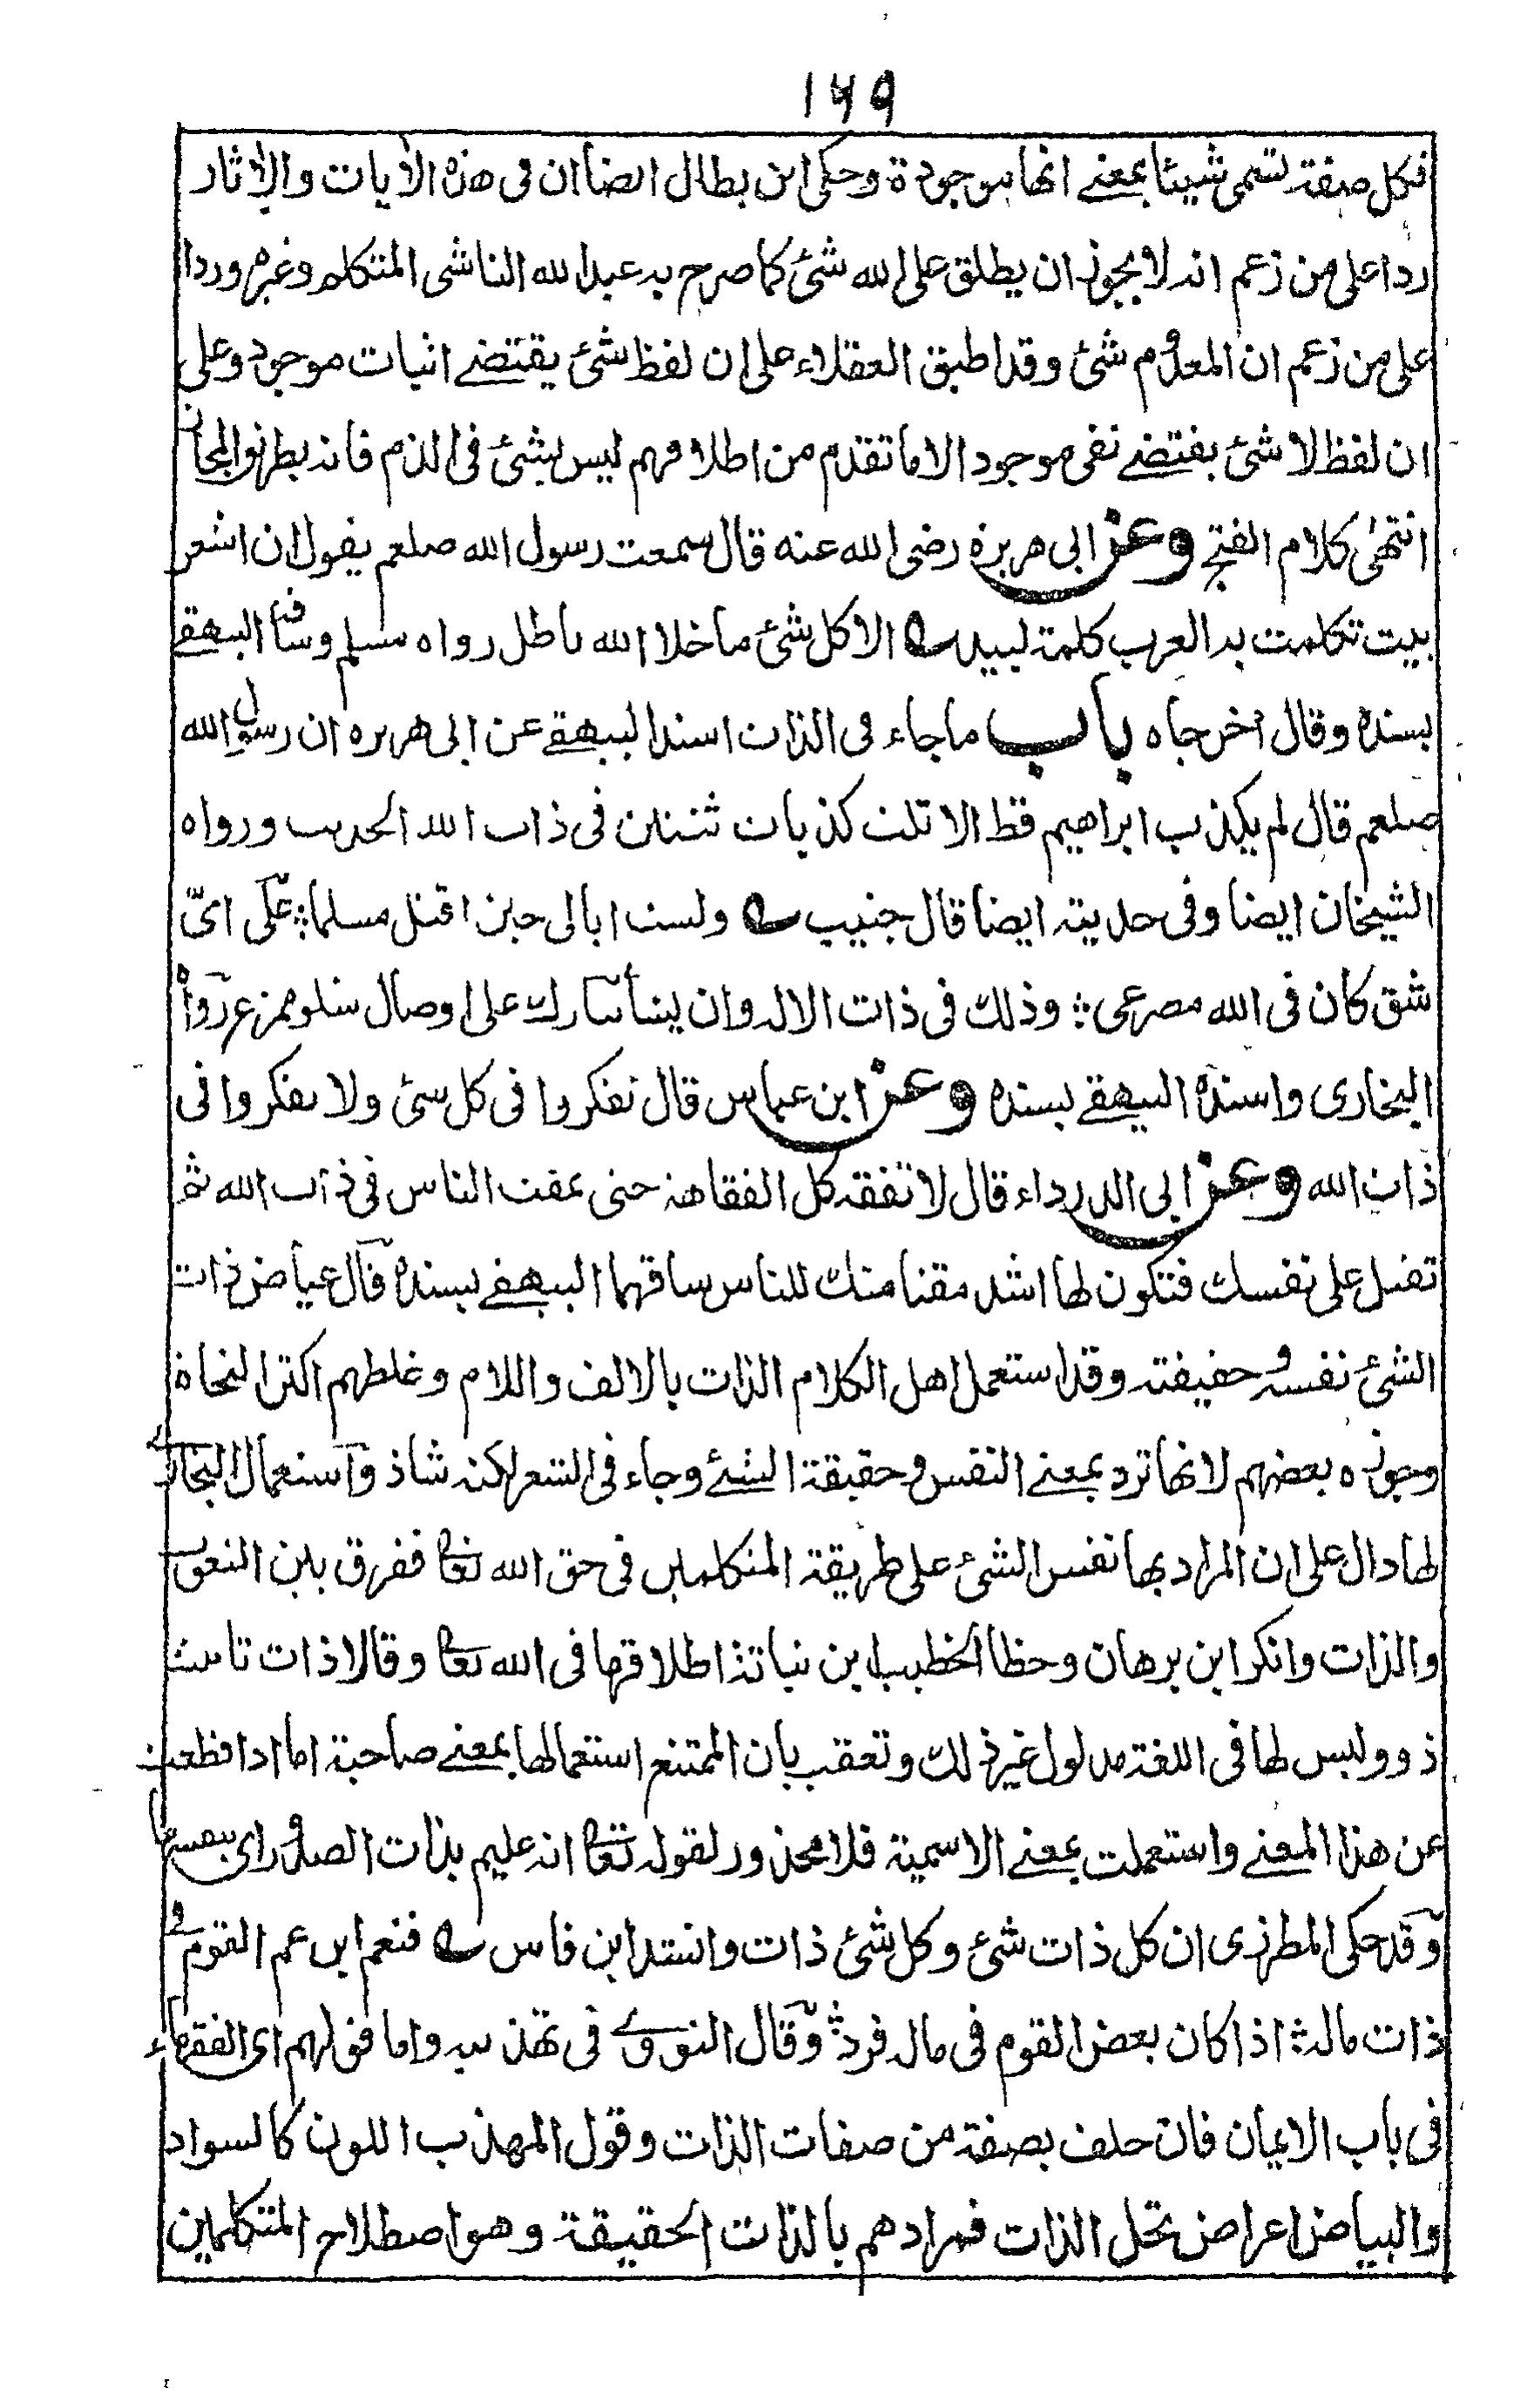 ١٦٩
فكل صفة تسمى شيئا بمعنے انها موجودة وحكى ابن بطال ايضا ان فى هذه الآيات والآثار
ردا على من زعم انه لا يجوز ان يطلق على الله شئ كما صرح به عبد الله الناشى المتكلم وغيره وردا
على من زعم ان المعدوم شئ وقد اطبق العقلاء على ان لفظ شئ يقتضے اثبات موجود وعلى
ان لفظ لا شئ يقتضے نفى موجود الا ما تقدم من اطلاقهم ليس بشئ فى الذم فانه بطريق المجاز
انتهى كلام الفتح وعن ابى هريرة رضى الله عنه قال سمعت رسول الله صلعم يقول ان اشعر
بيت تكلمت به العرب كلمة لبيد الا كل شئ ما خلا الله باطل رواه مسلم وساقه البيهقے
بسنده وقال اخرجاه باب ما جاء فى الذات اسند البيهقے عن ابى هريره ان رسول الله
صلعم قال لم يكذب ابراهيم قط الا ثلث كذبات ثنتين فى ذات الله الحديث ورواه
الشيخان ايضا وفى حديثه ايضا قال خبيب ولست ابالى حين اقتل مسلما؛ على اىّ
شق كان فى الله مصرعى؛ وذلك فى ذات الاله وان يشأ يبارك على اوصال شلو ممزع رواه
البخارى واسنده البيهقے بسنده وعن ابن عباس قال تفكروا فى كل شئ ولا تفكروا فى
ذات الله وعن ابى الدرداء قال لا تفقه كل الفقاهة حتى تمقت الناس فى ذات الله ثم
تقبل على نفسك فتكون لها اشد مقتا منك للناس ساقهما البيهقے بسنده قال عياض ذات
الشئ نفسه وحقيقته وقد استعمل اهل الكلام الذات بالالف واللام وغلطهم اكثر النحاة
وجوزه بعضهم لانها ترد بمعنے النفس وحقيقة الشئ وجاء فى الشعر لكنه شاذ واستعمال البخارى
لها دال على ان المراد بها نفس الشئ على طريقة المتكلمين فى حق الله تعا ففرق بين النعوت
والذات وانكر ابن برهان وخطا الخطيب ابن نباتة اطلاقها فى الله تعا وقالا ذات تانيث
ذو وليس لها فى اللغة مدلول غير ذلك وتعقب بان الممتنع استعمالها بمعنے صاحبة اما اذا قطعت
عن هذا المعنے واستعملت بمعنے الاسمية فلا محذور لقوله تعا انه عليم بذات الصدور اى بنفسها
وقد حكى المطرزى ان كل ذات شئ وكل شئ ذات وانشد ابن فاس فنعم ابن عم القوم فى
ذات ماله؛ اذا كان بعض القوم فى ماله فرد؛ وقال النووى فى تهذيبه واما قولهم اى الفقهاء
فى باب الايمان فان حلف بصفة من صفات الذات وقول المهذب اللون كالسواد
والبياض اعراض تحل الذات فمرادهم بالذات الحقيقة وهو اصطلاح المتكلمين